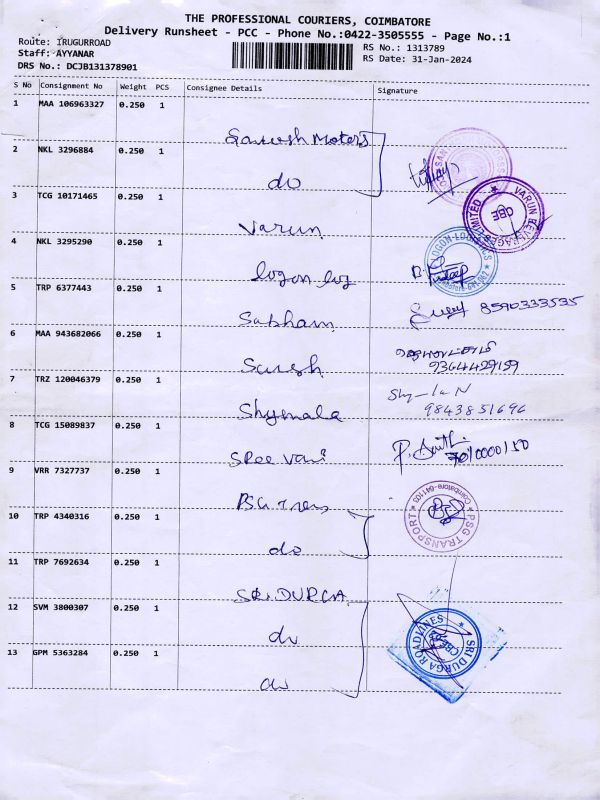 THE PROFESSIONAL COURIERS, COIMBATORE
Delivery Runsheet - PCC - Phone No.:0422-3505555 - Page No.:1
Route: IRUGURROAD
RS No.: 1313789
Staff: AYYANAR
RS Date: 31-Jan-2024
DRS No.: DCJB131378901
S No Consignment No Weight PCS Consignee Details Signature
1 MAA 106963327 0.250 1 Santosh Motors
2 NKL 3296884 0.250 1 do
3 TCG 10171465 0.250 1 Varun
VARUN BEVERAGES LIMITED ★ CBE
4 NKL 3295290 0.250 1 logon log
LOGON LOGISTICS
5 TRP 6377443 0.250 1 Subham 8590333535
6 MAA 943682066 0.250 1 Suresh
9364429159
7 TRZ 120046379 0.250 1 Shymala
9843851696
8 TCG 15089837 0.250 1 SRee Vani
9 VRR 7327737 0.250 1 PSG Trans
PSG TRANSPORT ★ Coimbatore-641103
10 TRP 4340316 0.250 1 do
11 TRP 7692634 0.250 1 SRI.DURGA
12 SVM 3800307 0.250 1 do
SRI DURGA ROADLINES ★ CBE
13 GPM 5363284 0.250 1 do